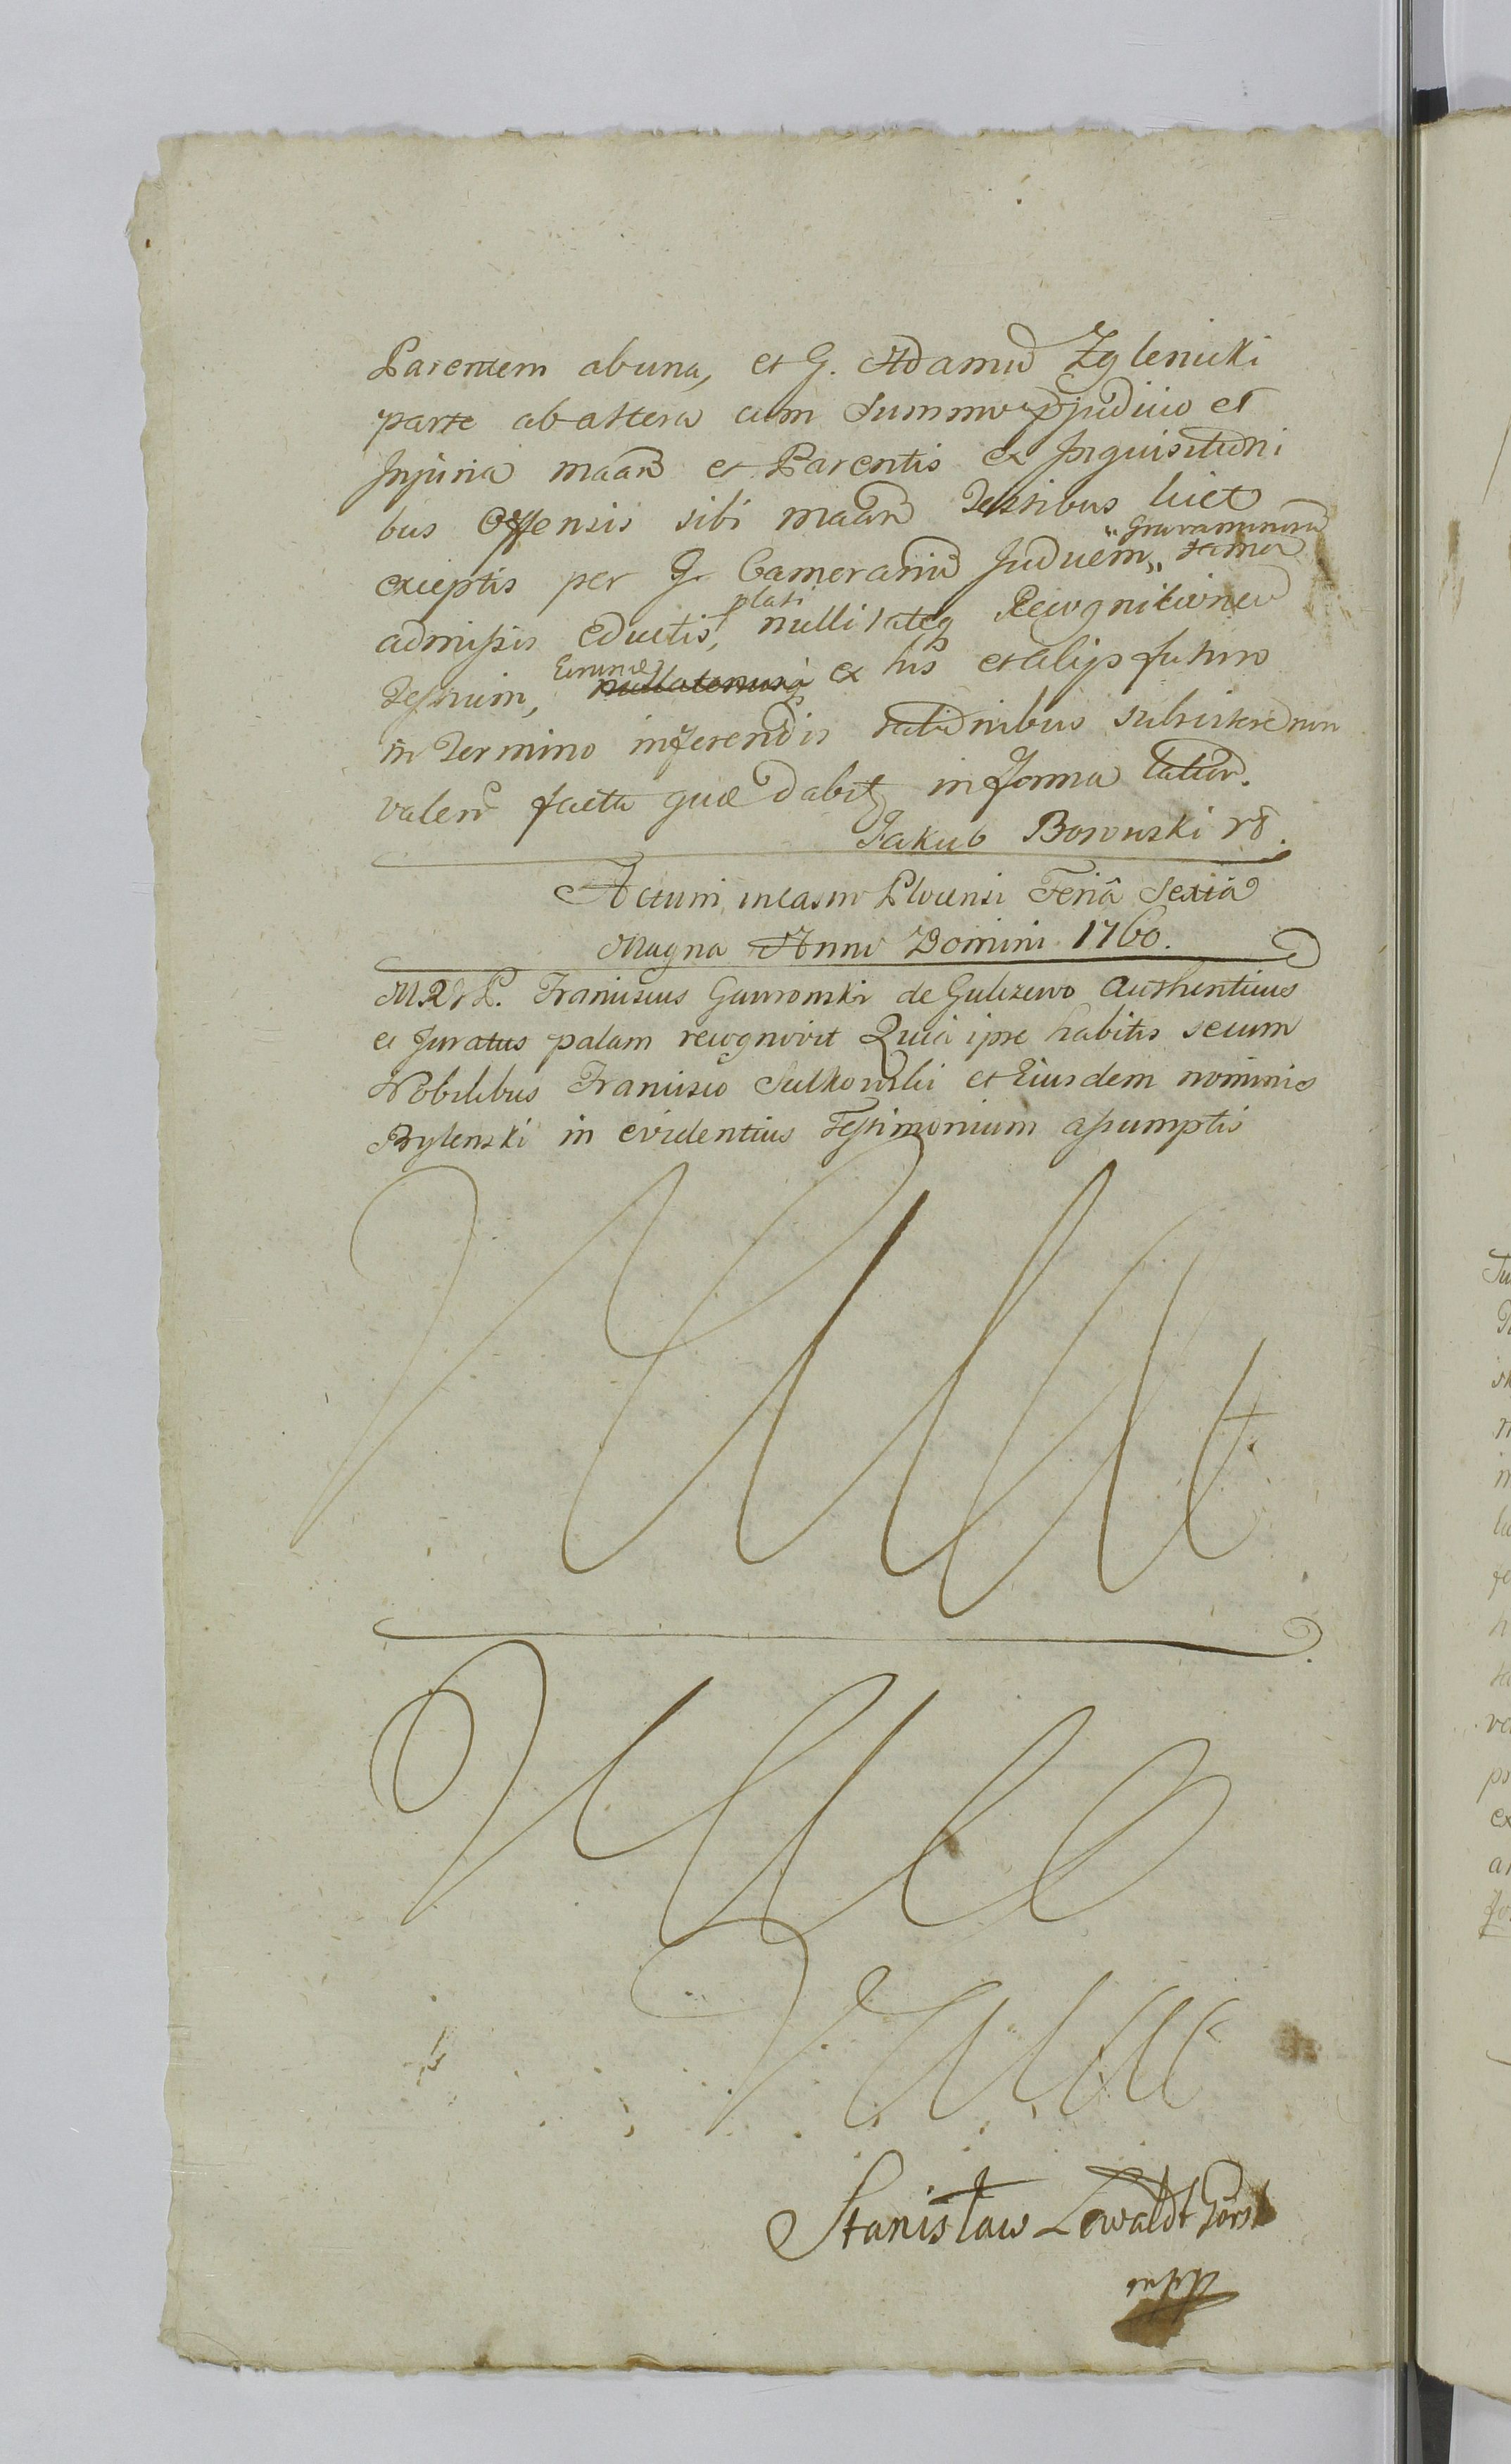 Parentem ab una, et G. Adamũ Zglenicki
parte ab altera cum Summo pjudicio et
Injuria et Parentis ex Inquisitioni
bus Offensis sibi Testibus licet
Gravaminosa
exceptis per G. Camerariũ Judicem
plati
admissis eductis, nullitateq Recognitione
Testium, ex his et alijs futuro
in Termino inferendis rationibus subsistere non
valen facta quæ dabit in forma latior.
Jakub Borowski
Actum in Castro Plocensi Feriâ Sextâ
Magna Anno Domini 1760.
Franciscus Gawroński de Gulczewo Authenticus
et Juratus palam recognovit Quia ipse habitis secum
Nobilibus Francisco Sulkowski et Eiusdem nominis
Bylenski in evidentius Testimonium assumptis
Stanisław Lewaldt Górsk
mpp